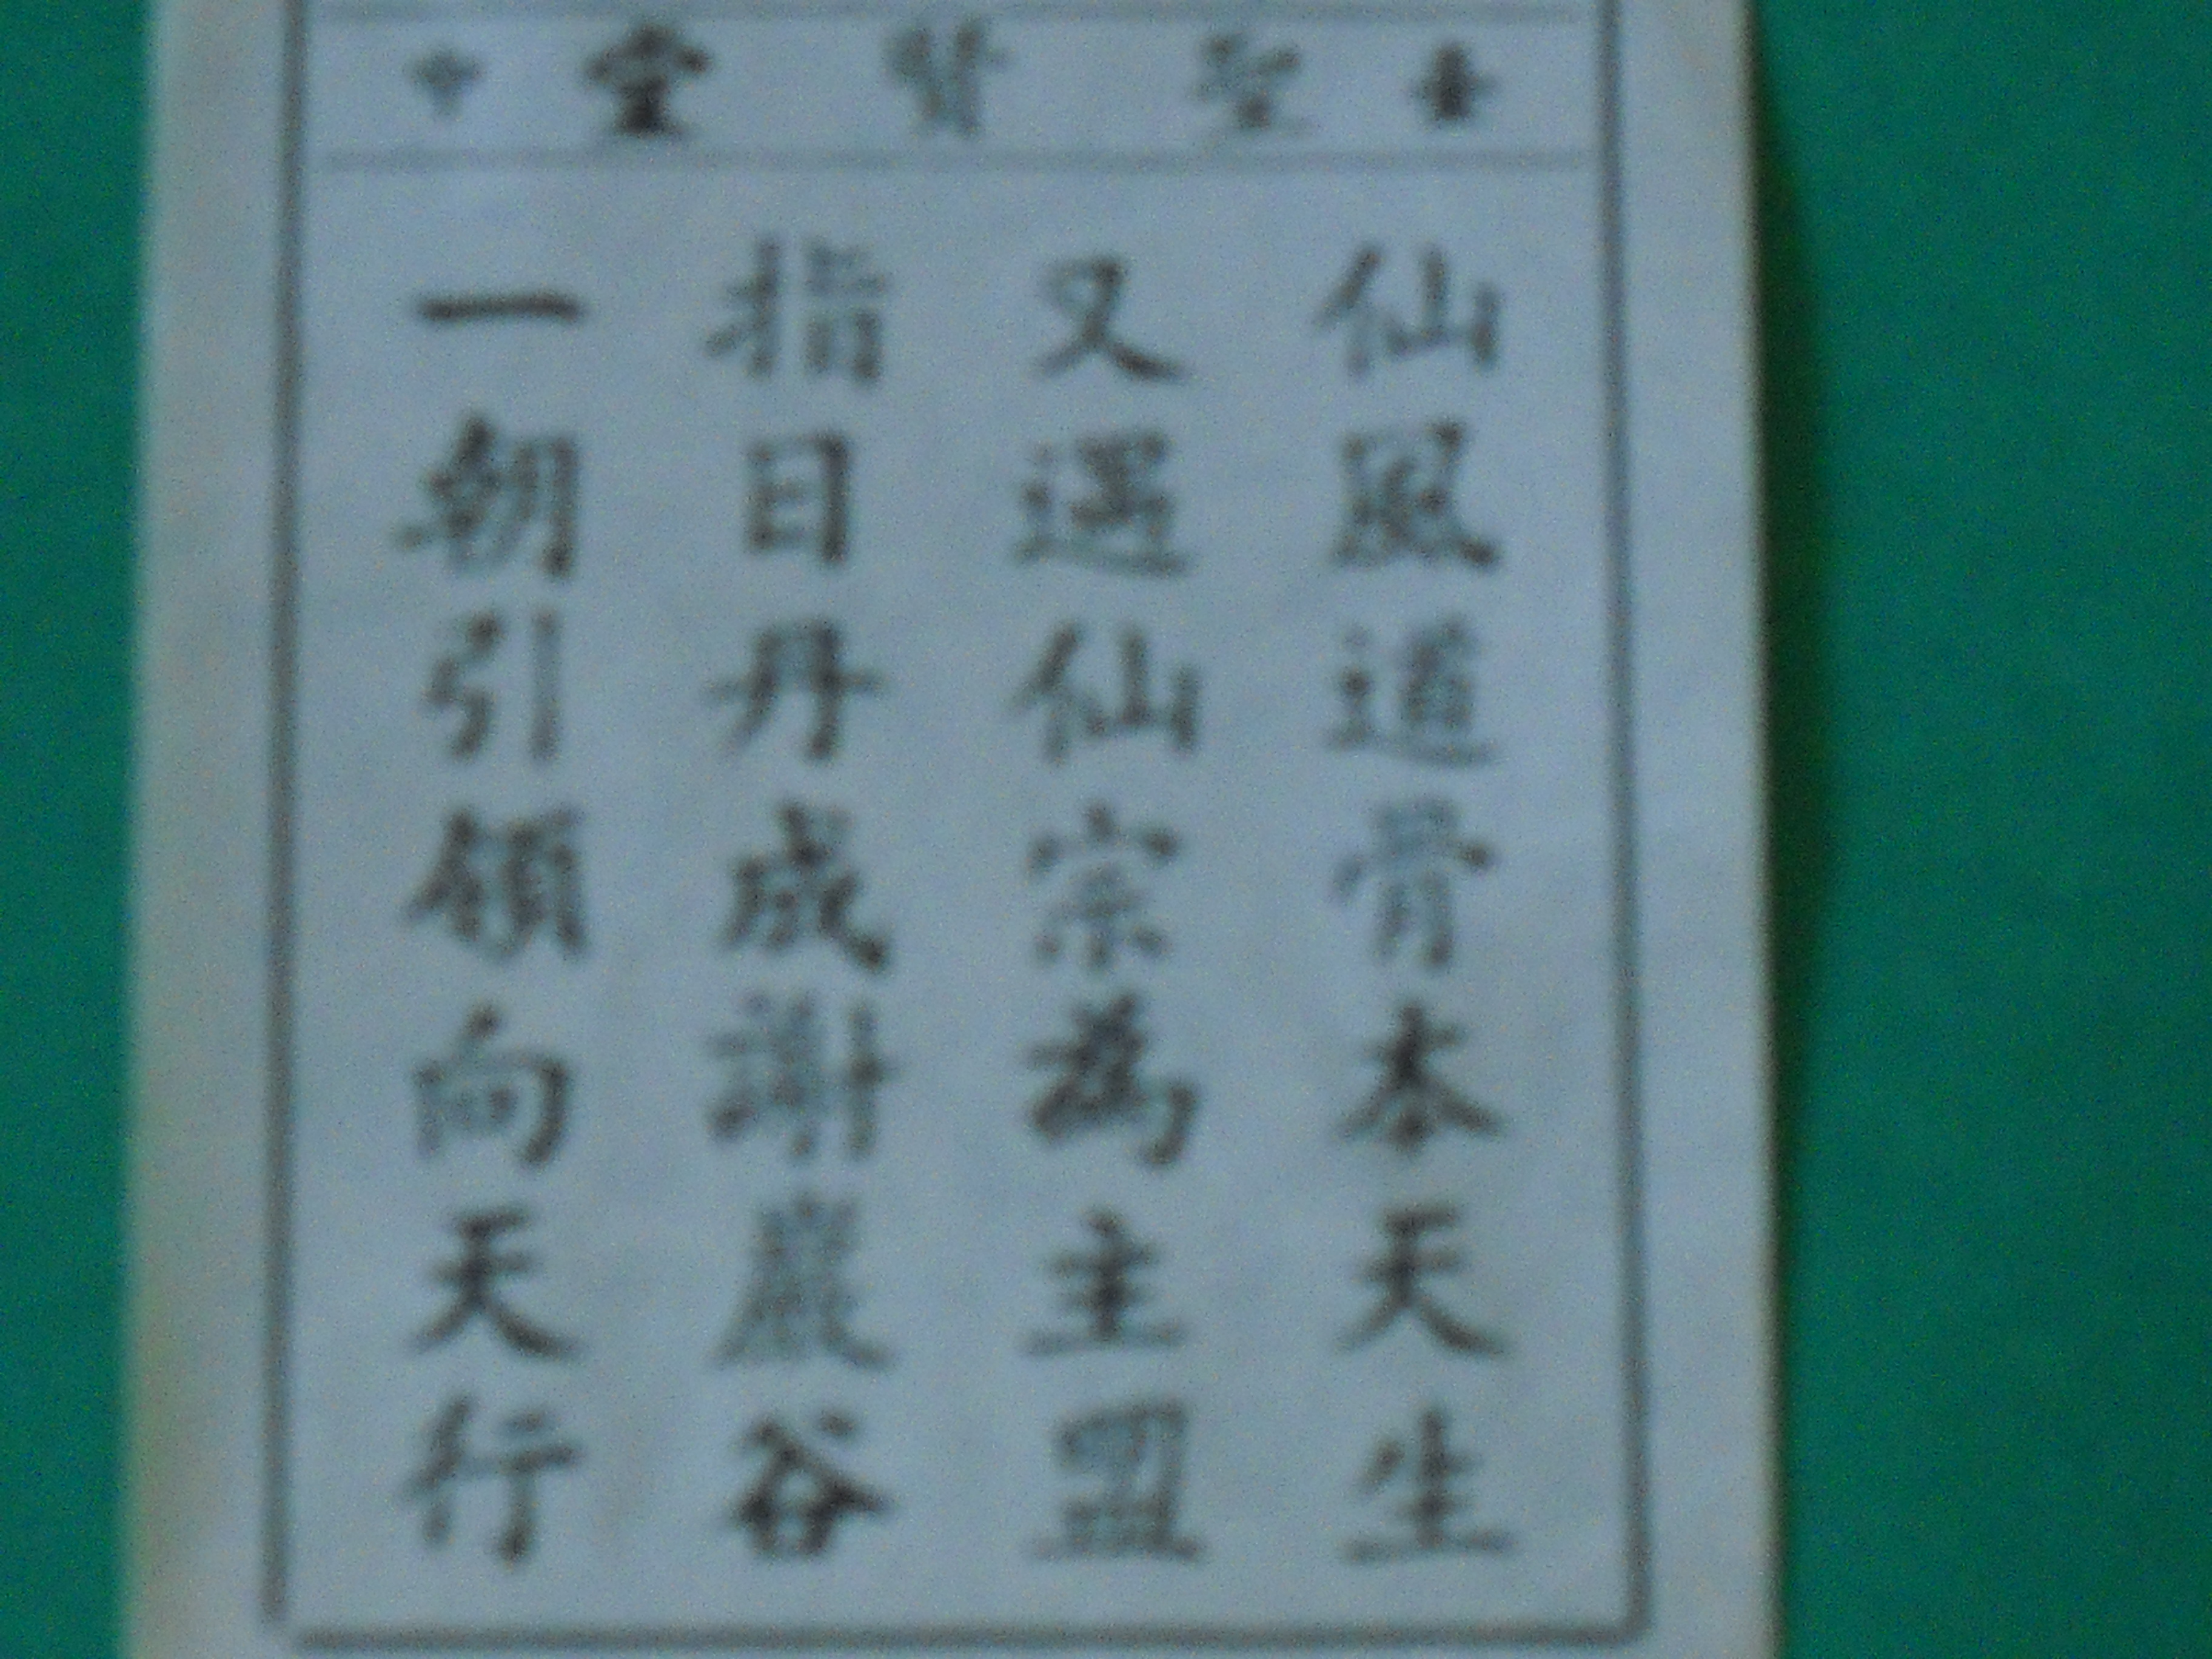 聖賢堂
仙風道骨本天生
又遇仙宗為主盟
指日丹成謝巖谷
一朝引領向天行